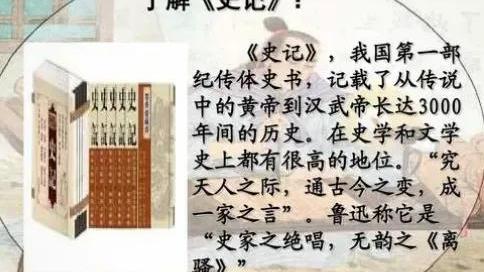 了解《史记》：
《史记》，我国第一部
纪传体史书，记载了从传说
中的黄帝到汉武帝长达3000
年间的历史。在史学和文学
史上都有很高的地位。“究
天人之际，通古今之变，成
一家之言”。鲁迅称它是
“史家之绝唱，无韵之《离
骚》”
史記
史記
史記
史記
史記
史記